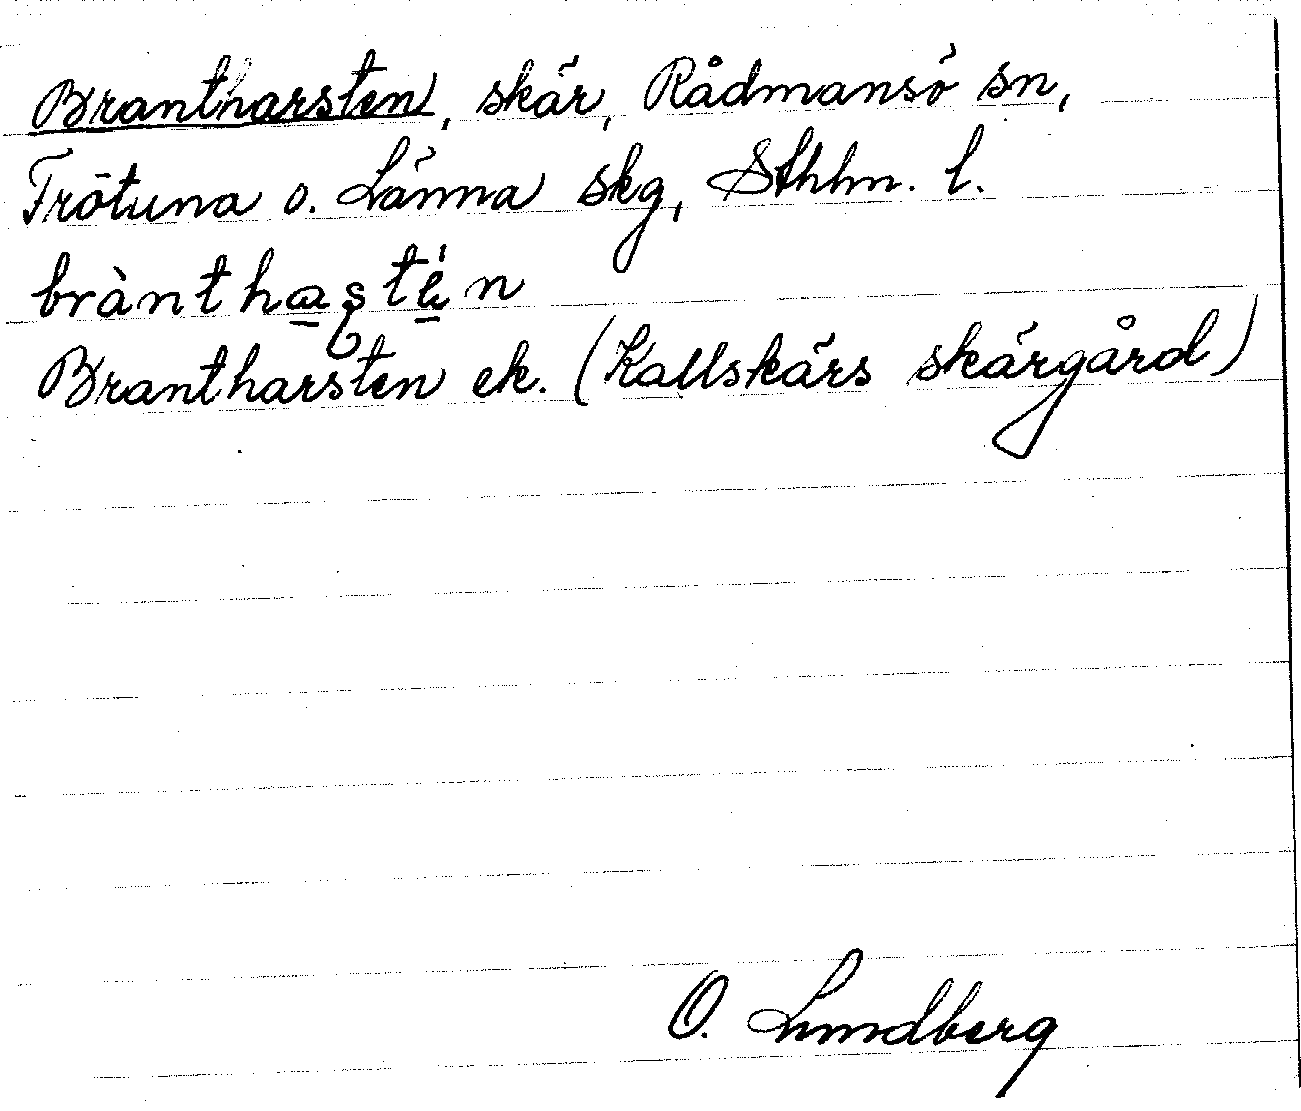 Brantharsten, skär, Rådmansö sn,
Frötuna o. Länna skg, Sthlm. l.
brànthastén
Brantharsten ek. (Kallskärs skärgård)
O. Lundberg